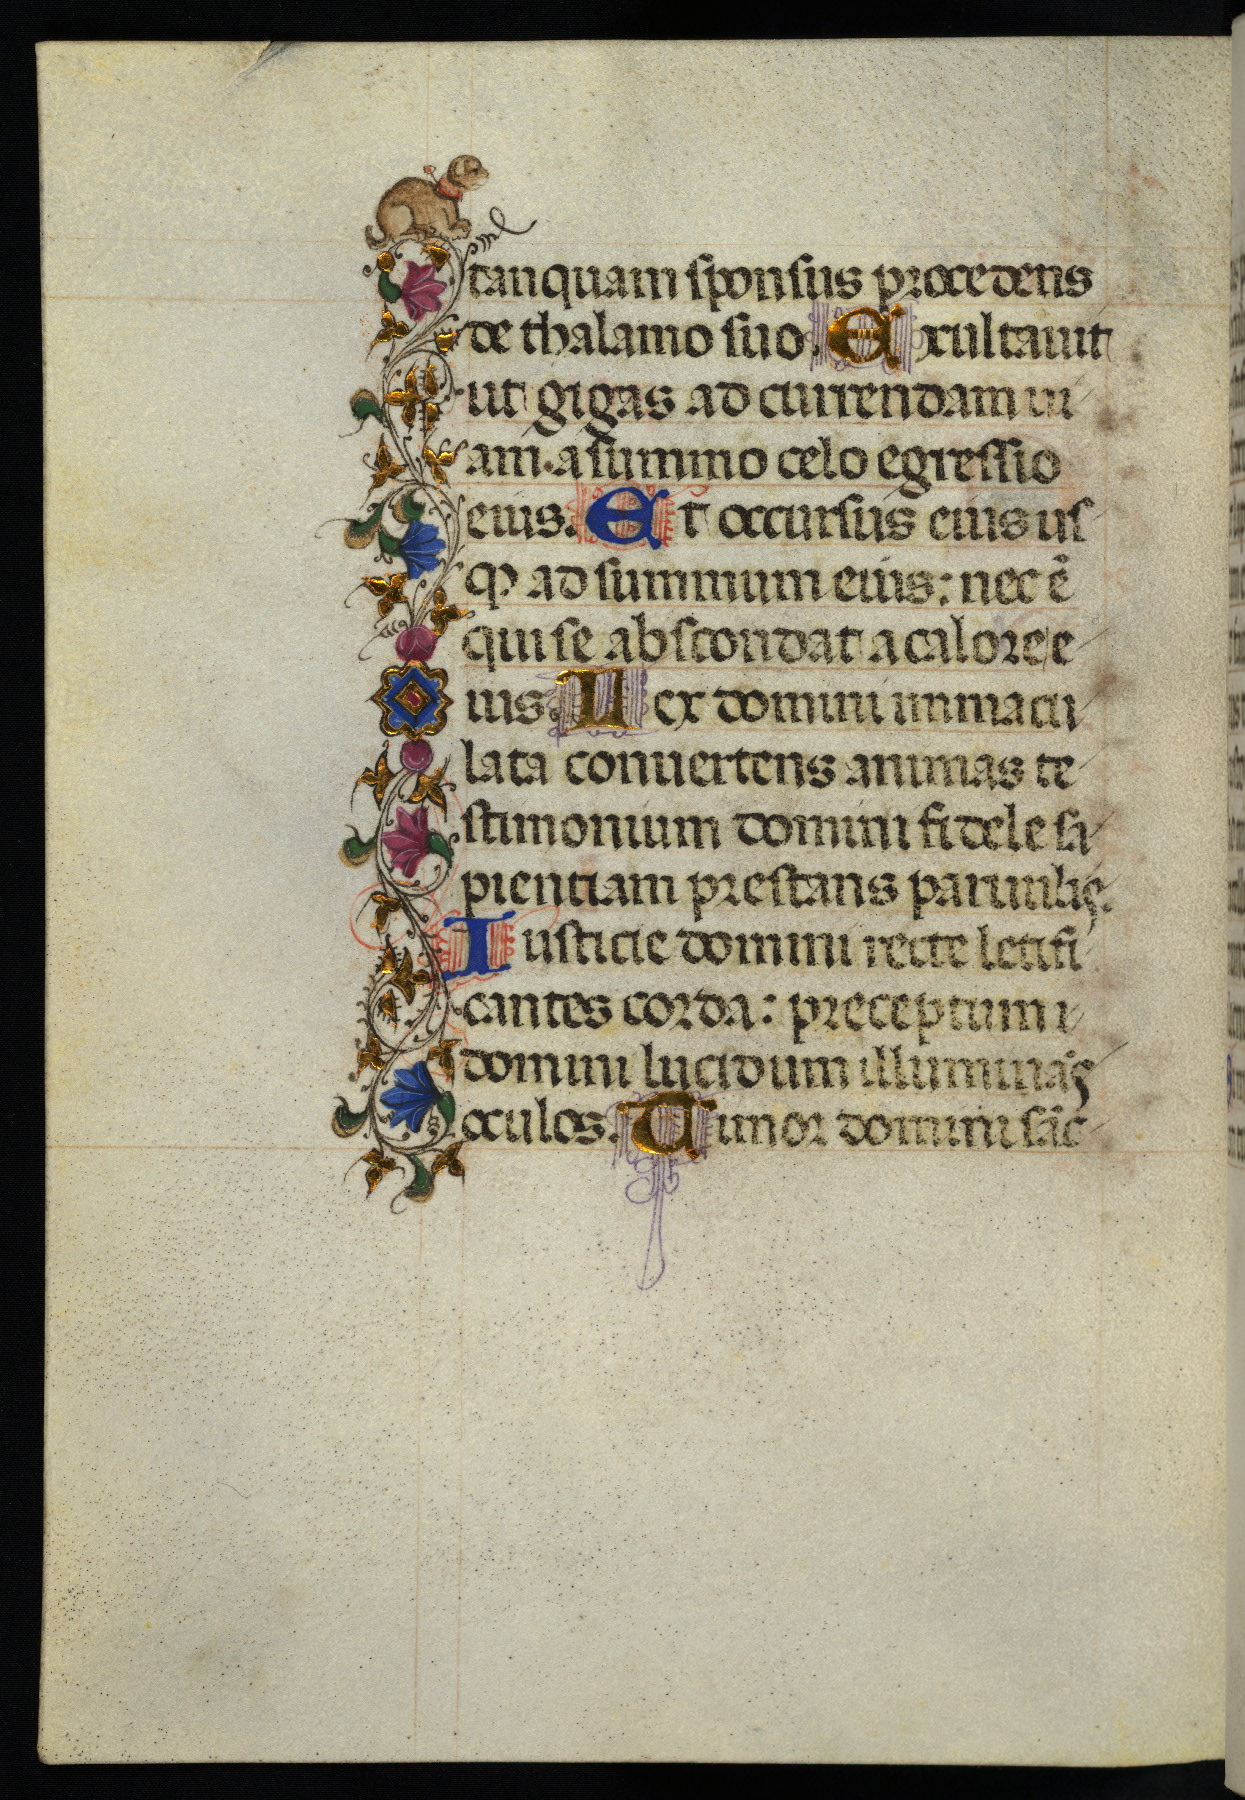 tanquam sponsus procedens
de thalamo suo. Exultauit
ut gigas ad currendam ui
am. a summo celo egressio
eius. Et occursus eius us
qꝫ ad summum eius: nec ē
qui se abscondat a calore e
ius. Lex domini immacu
lata conuertens animas te
stimonium domini fidele sa
pientiam prestans paruulis.
Iusticie domini recte letifi
cantes corda: preceptum
domini lucidum illuminās
oculos. Timor domini sāc